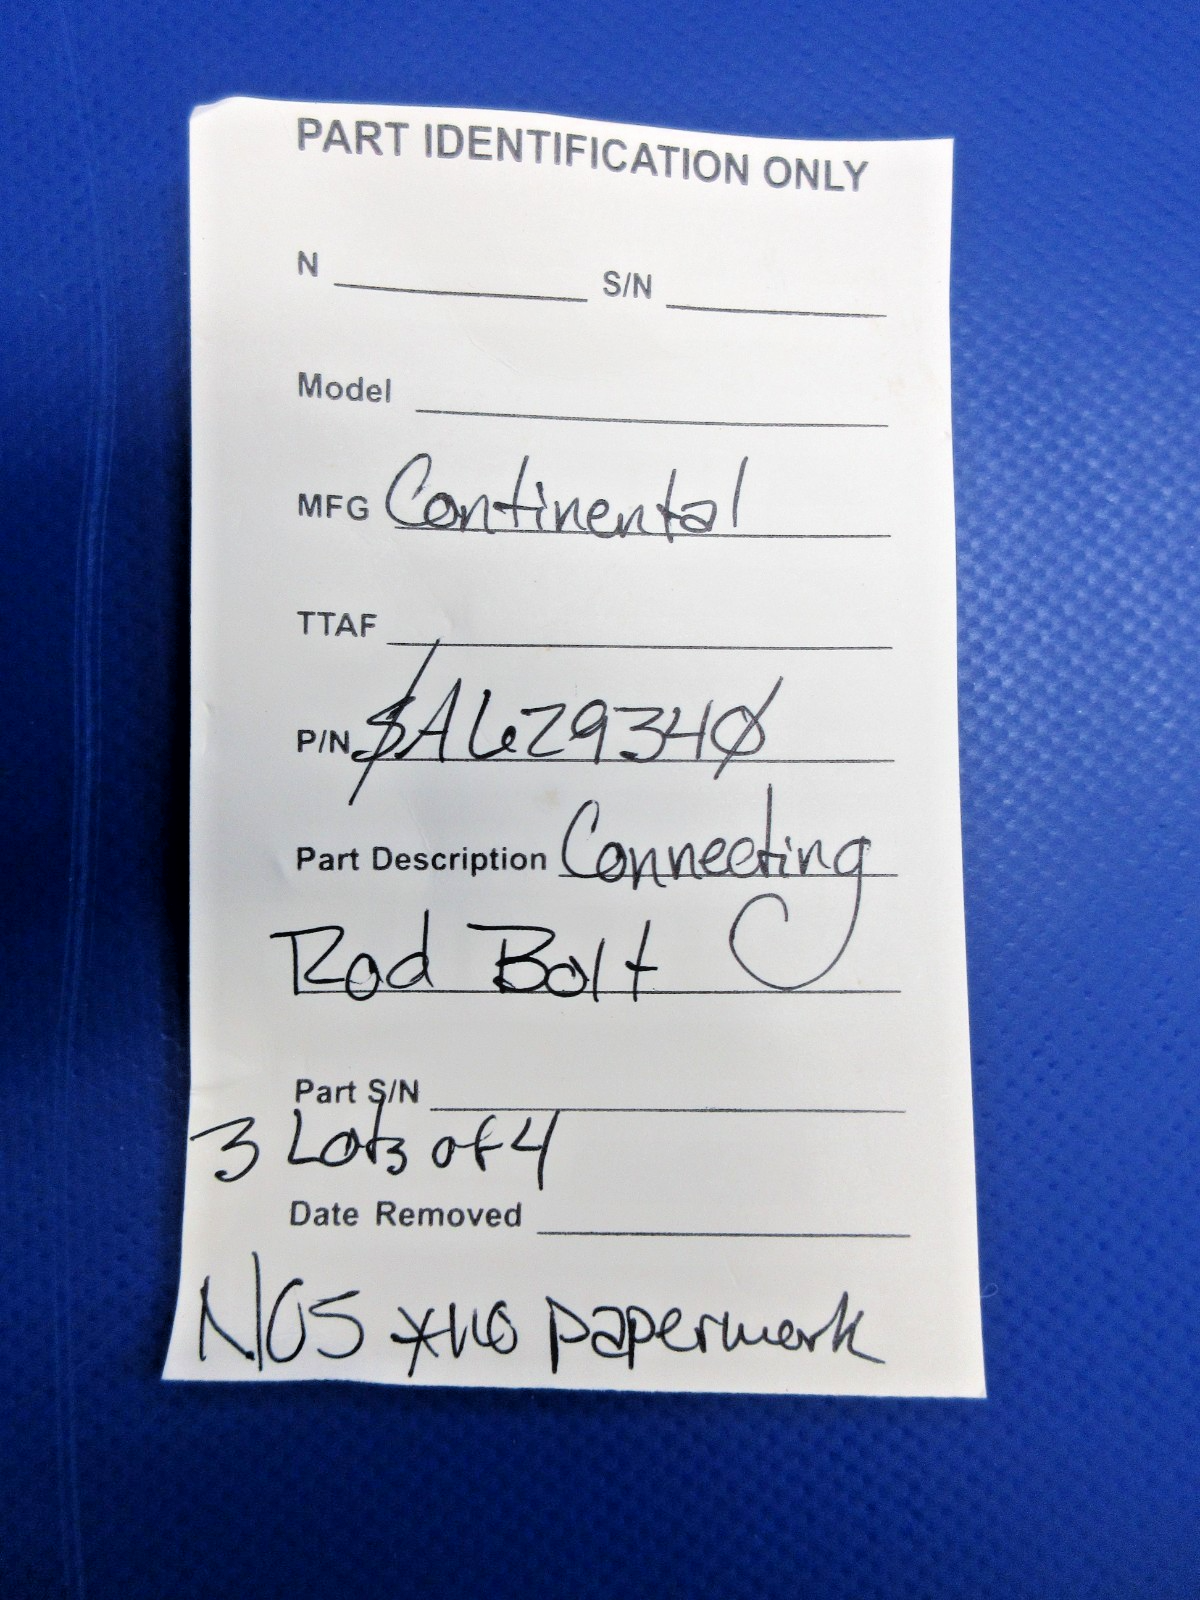 PART IDENTIFICATION ONLY
N S/N
Model
MFG Continental
TTAF
P/N SA629340
Part Description Connecting
Rod Bolt
Part S/N
3 Lots of 4
Date Removed
NOS *no paperwork